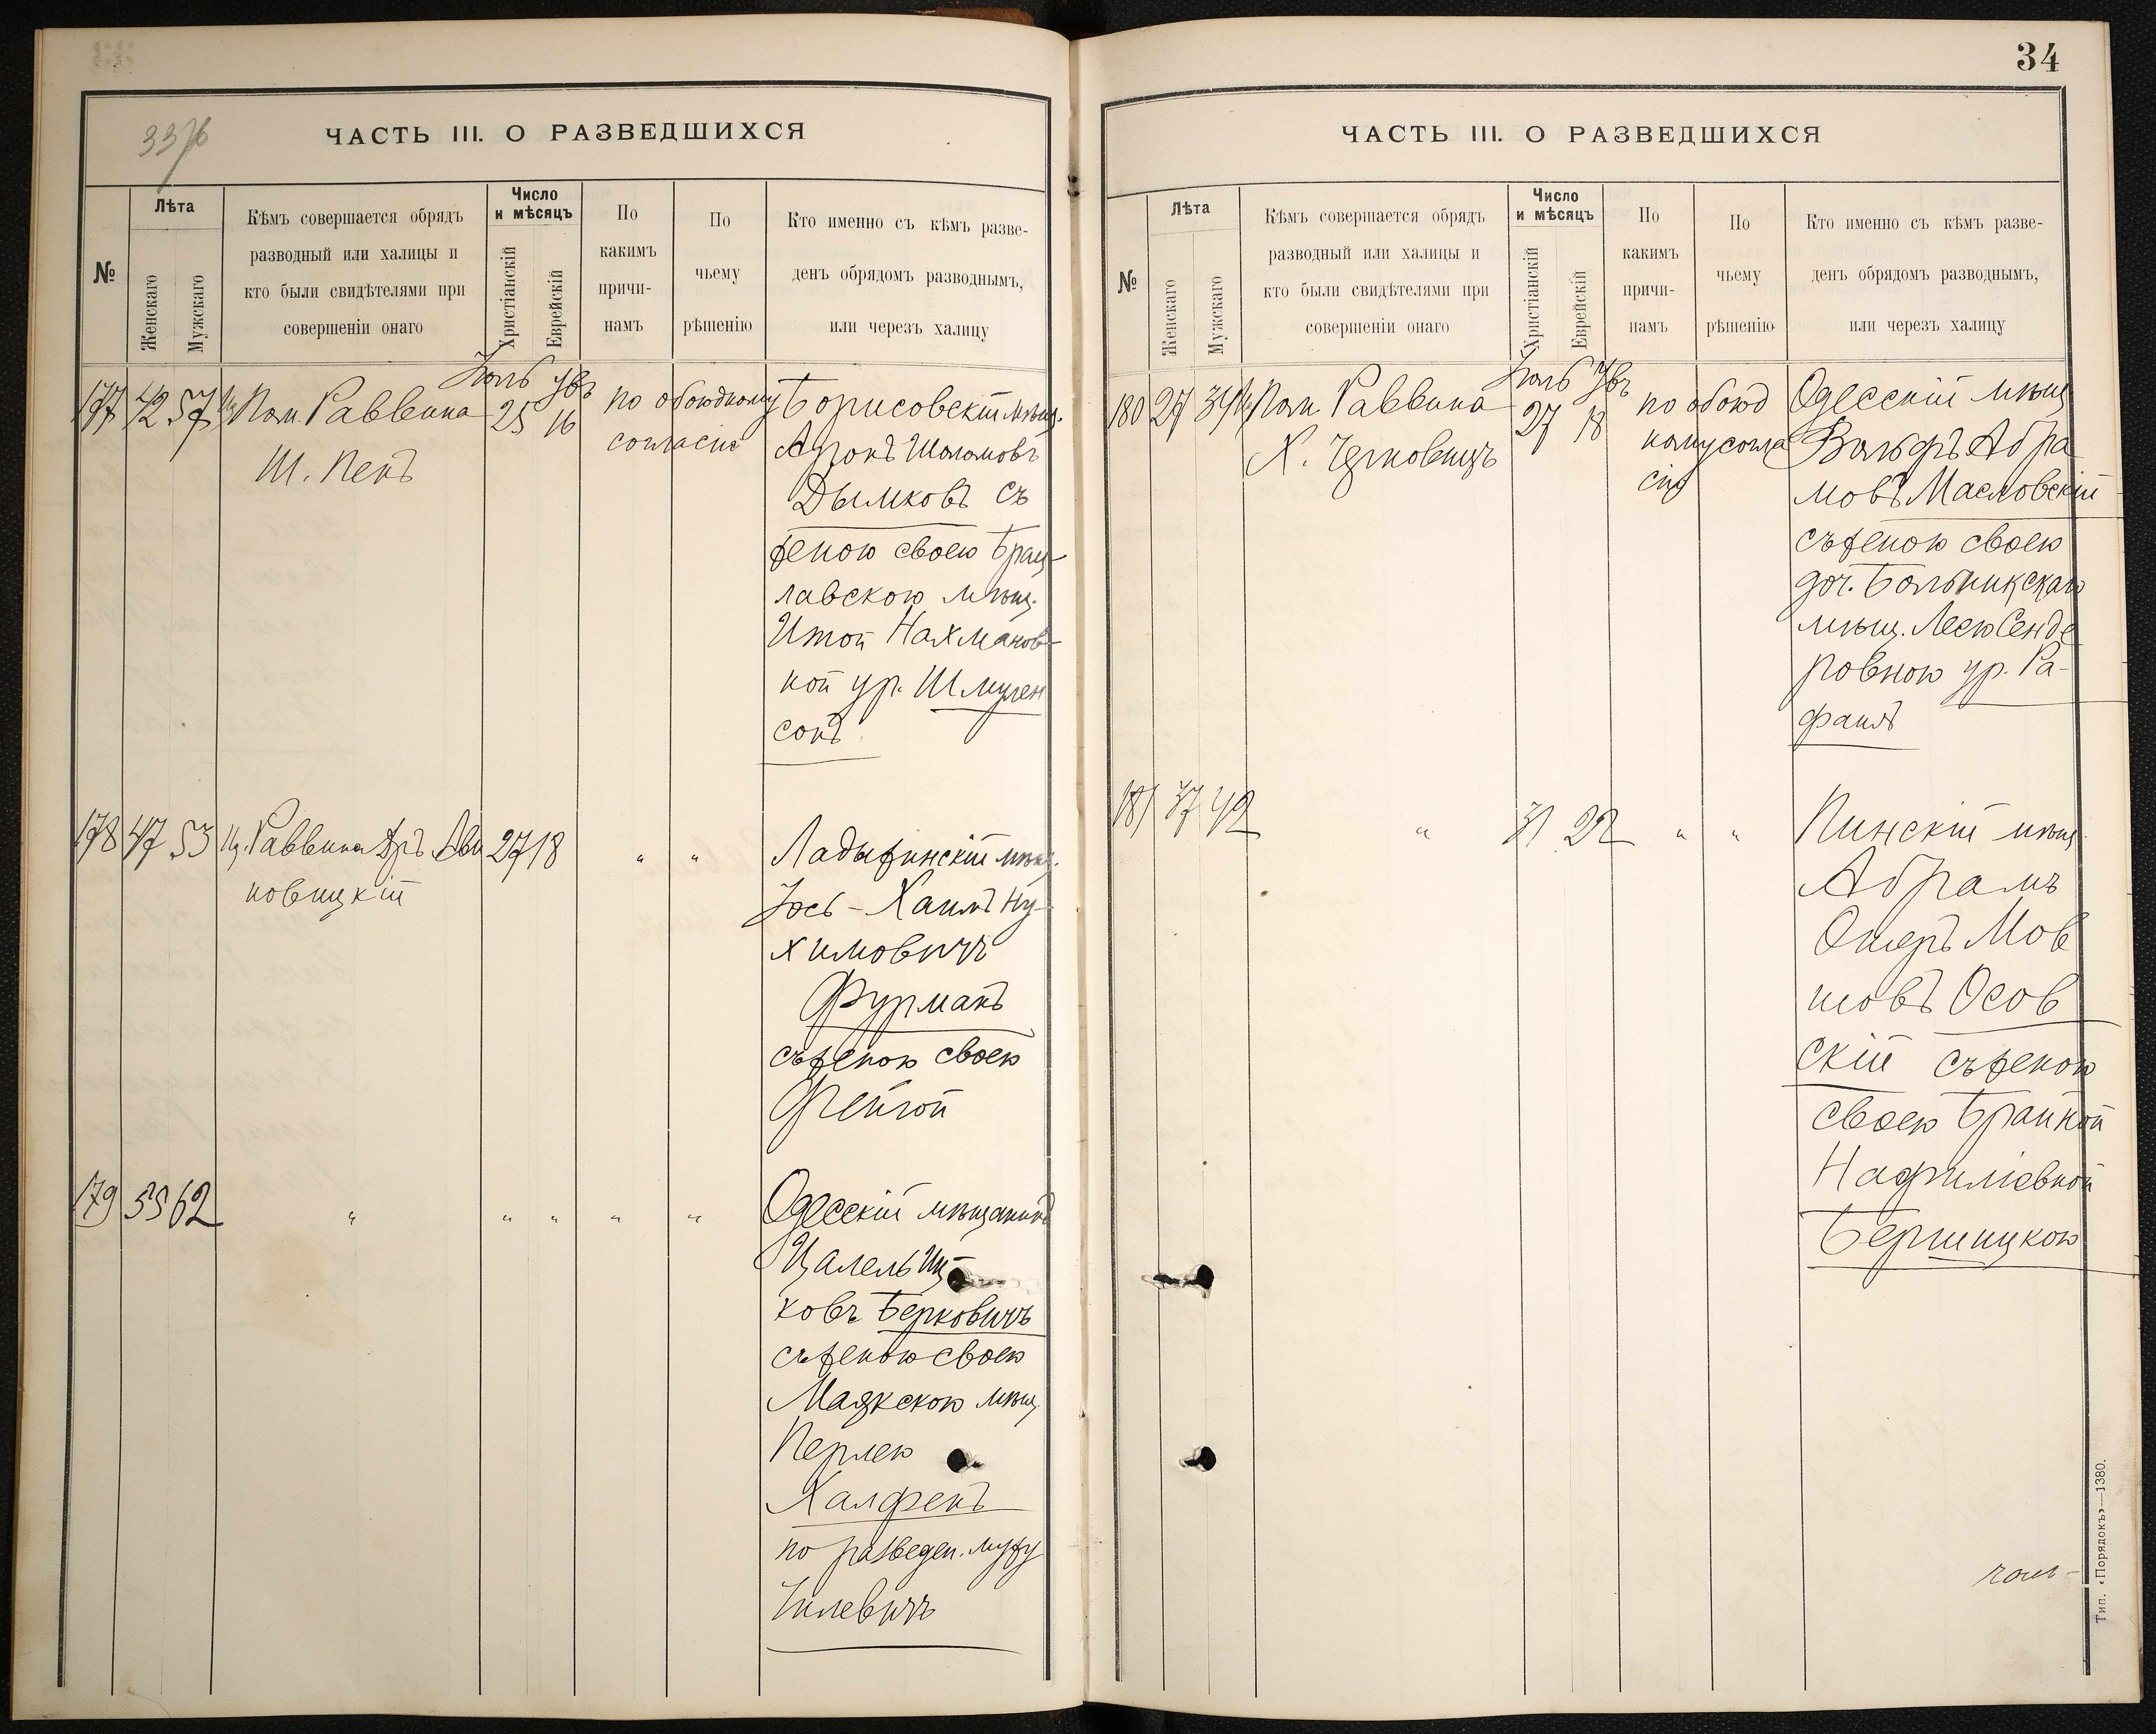 34
ЧАСТЬ III. О РАЗВЕДШИХСЯ
№
Лѣта
Женскаго
Мужскаго
Кѣмъ совершается обрядъ
разводный или халицы и
кто были свидѣтелями при
совершеніи онаго
Число
и мѣсяцъ
Христіанскій
Еврейскій
По
какимъ
причи-
намъ
По
чьему
рѣшенію
Кто именно съ кѣмъ разве-
денъ обрядомъ разводнымъ,
или черезъ халицу
Іюль
177 42 57 Пом. Раввина 25 16 по обоюдному Борисовскій мѣщ.
Ш. Пенъ согласію Аронъ Шоломовъ
Дымковъ съ
женою своею Брац-
лавскою мѣщ.
Итой Нахманов-
ной ур. Шмулен
сонъ
178 47 53 Раввина Дръ Ави 27 18 " " Ладыжинскій мѣщ.
новицкій Іось-Хаимъ Ну-
химовичъ
Фурманъ
съ женою своею
Фейгой
179 55 62 " " " " " Одесскій мѣщанинъ
Цалель Иц-
ковъ Берковичъ
съ женою своею
Маякскою мѣщ.
Перлею
Халфенъ
по разведен. мужу
Хилевичъ
ЧАСТЬ III. О РАЗВЕДШИХСЯ
№
Лѣта
Женскаго
Мужскаго
Кѣмъ совершается обрядъ
разводный или халицы и
кто были свидѣтелями при
совершеніи онаго
Число
и мѣсяцъ
Христіанскій
Еврейскій
По
какимъ
причи-
намъ
По
чьему
рѣшенію
Кто именно съ кѣмъ разве-
денъ обрядомъ разводнымъ,
или черезъ халицу
Іюль
180 27 34 Пом. Раввина 27 18 по обоюд Одесскій мѣщ.
Х. Черковичъ ному согла Вольфъ Абра
сію мовъ Масловскій
съ женою своею
доч.
мѣщ. Лею Сенде
ровною ур. Ра-
фаилъ
181 37 42 " 31 22 " " Пинскій мѣщ.
Абрамъ
Ошеръ Мов
шовъ Осов
скій съ женою
своею Брайной
Бершицкою
Тип. «Порядокъ»—1380.